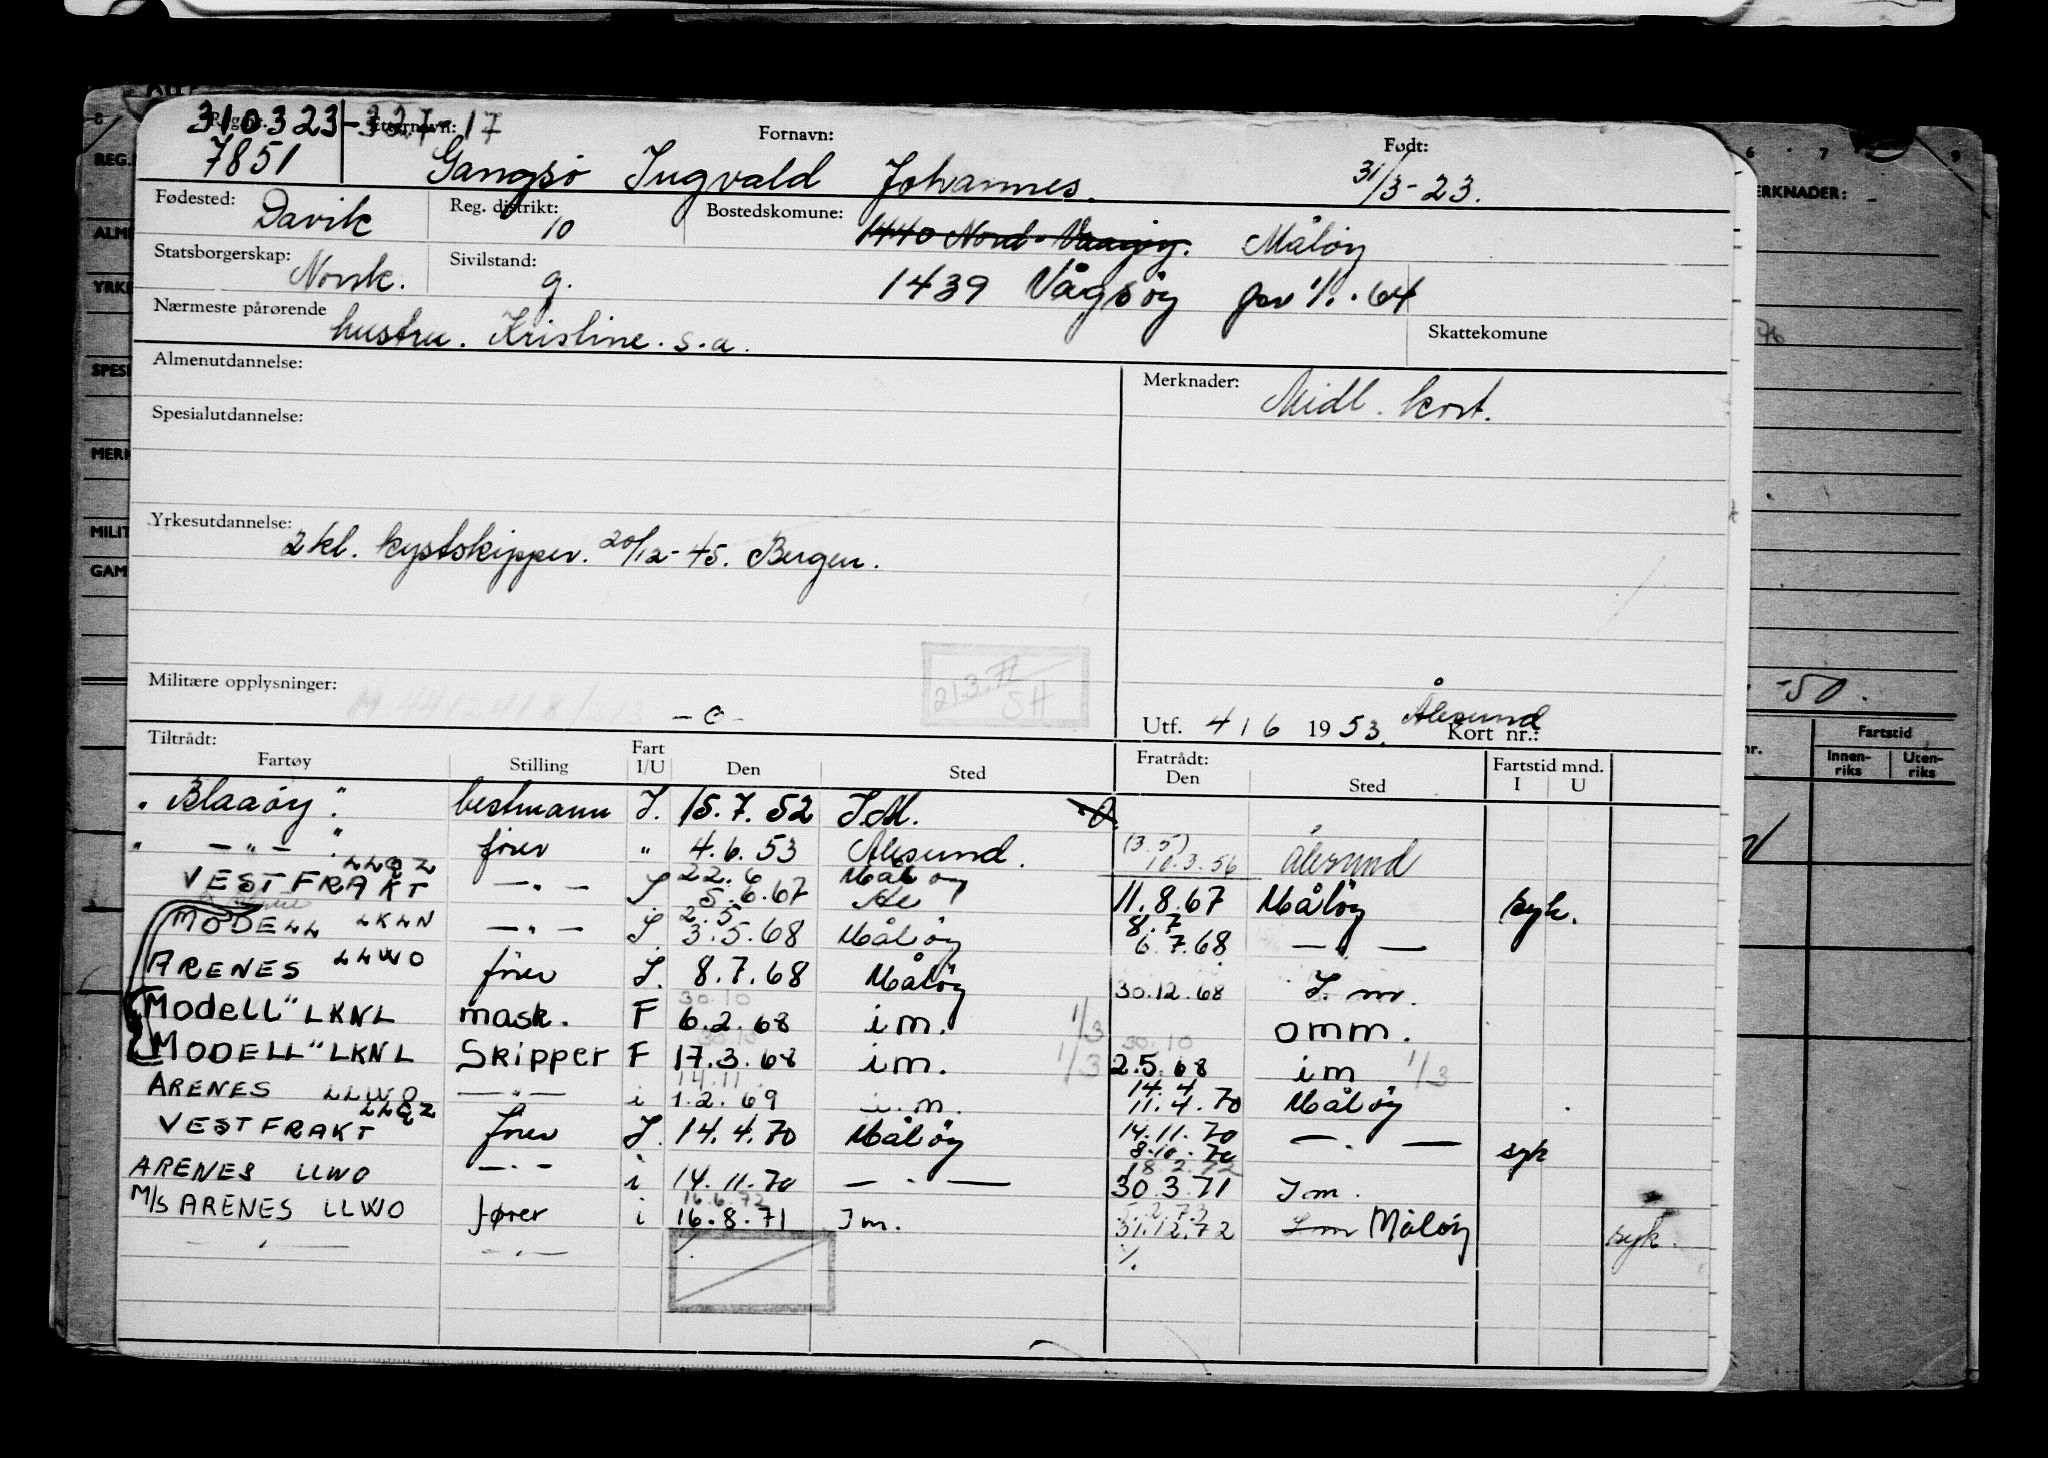 310323-32717
Etternavn: Fornavn: Født:
7851 Gangsö Ingvald Johannes. 31/3-23.
Fødested: Davik Reg. distrikt: 10 Bostedskomune: 1440 Nord-Vaagsøy. Måløy
Statsborgerskap: Norsk. Sivilstand: g. 1439 Vågsöy pr 1/1-64
Nærmeste pårørende hustru. Kristine. s.a. Skattekomune
Almenutdannelse: Merknader: Midl. kort.
Spesialutdannelse:
Yrkesutdannelse: 2 kl. kystskipper. 20/12-45. Bergen.
213.77
SH
Militære opplysninger: -o- Utf. 4/6 1953. Ålesund Kort nr.:
Tiltrådt: Fart Fratrådt: Fartstid mnd.
Fartøy Stilling I/U Den Sted Den Sted I U
"Blaaöy". bestmann I. 15.7.52 I.M.
" -"- " fører " 4.6.53 Ålesund. (3.5) 10.3.56 Ålesund
VESTFRAKT LLQZ -"- I 22.6 5.6.67 Måløy 11.8.67 Måløy syk.
MODELL LKLN -"- I. 2.5 3.5.68 Måløy 8.7 6.7.68 -"-
ARENES LLWO fører I. 8.7.68 Måløy 30.12.68 I.m.
"Modell" LKNL mask. F 30.10 6.2.68 im. 1/3 omm.
"MODELL" LKNL Skipper F 30.10 17.3.68 im. 1/3 30.10 2.5.68 im 1/3
ARENES LLWO -"- i 14.11. 1.2.69 i.m. 14.4 11.4.70 Måløy
VESTFRAKT LLQZ fører I. 14.4.70 Måløy 14.11.70 8.10.70 -"- syk
ARENES LLWO -"- i 14.11.70 -"- 18.2.72 30.3.71 I m.
M/S ARENES LLWO fører i 16.6.72 16.8.71 I m. 5.2.73 31.12.72 I m Måløy syk.
-"- -"- /. /.
REG.
ALM
YRKE
SPESI
MERK
MILIT
GAM
6 7 9
ERKNADER:
-50.
nr. Fartstid
Innen-
riks Uten-
riks